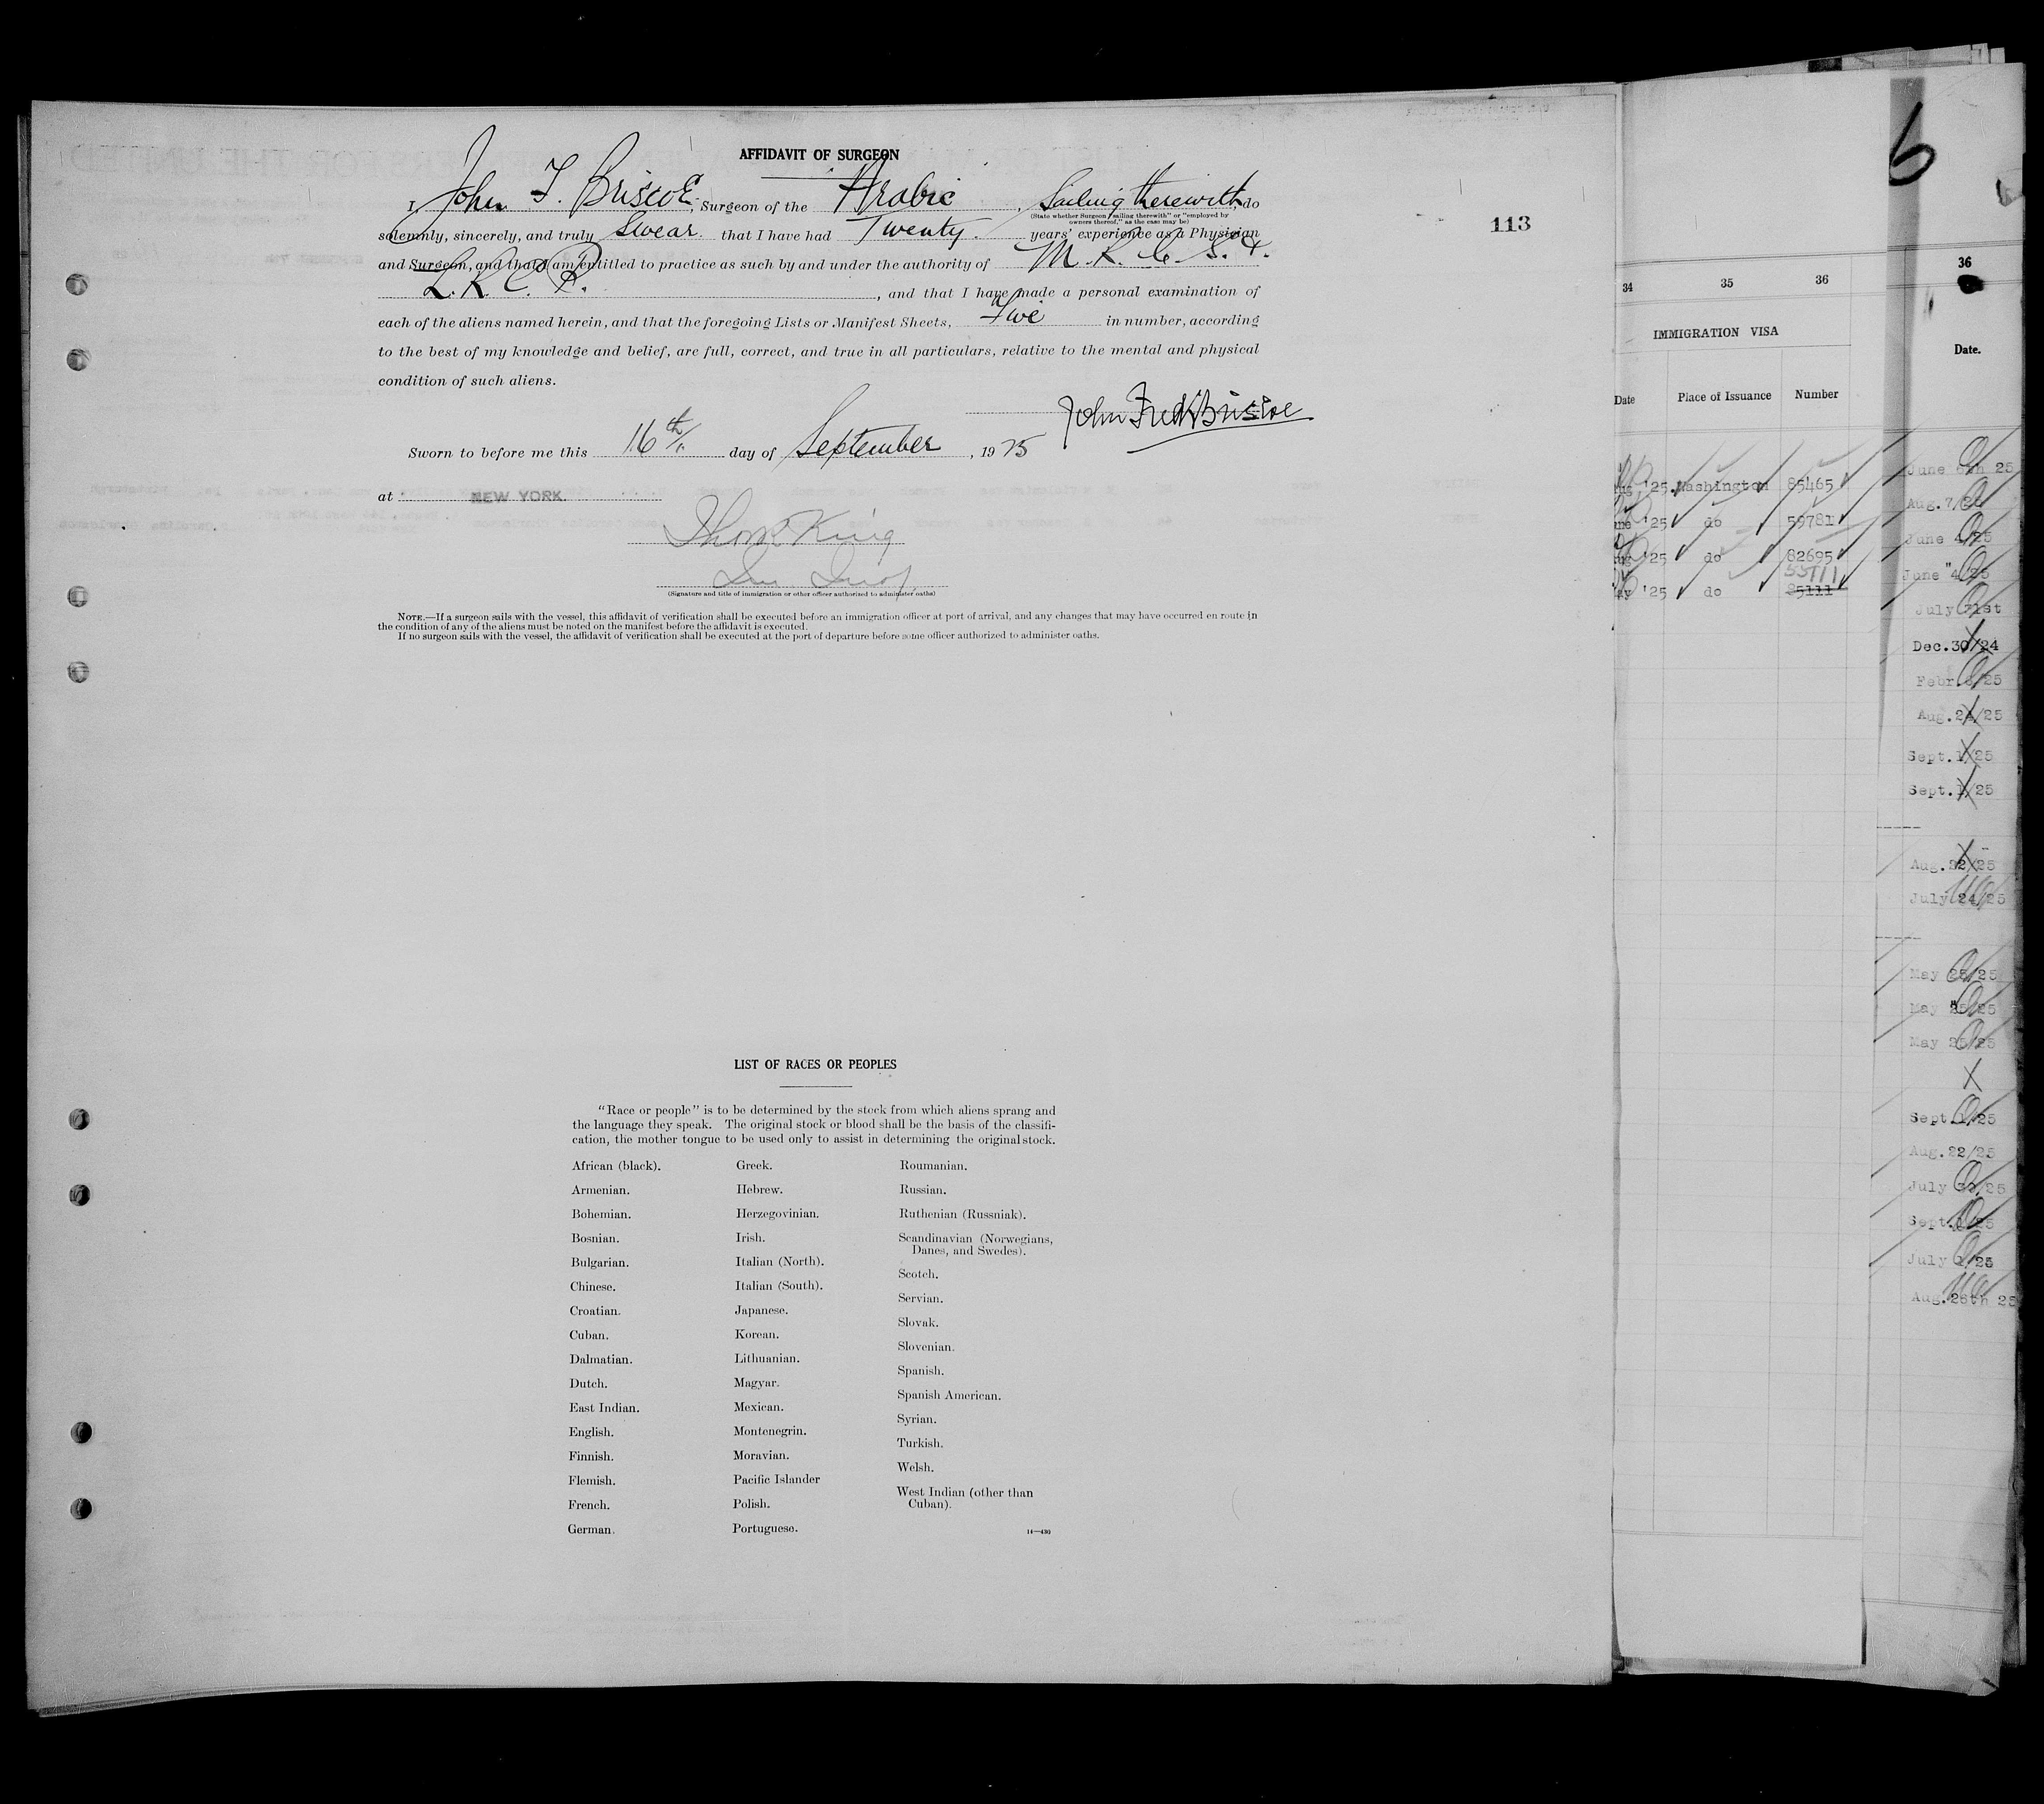 AFFIDAVIT OF SURGEON
I, John F. Briscoe, Surgeon of the Arabic, Sailing therewith, do
(State whether Surgeon "sailing therewith" or "employed by
owners thereof," as the case may be)
solemnly, sincerely, and truly Swear that I have had Twenty years' experience as a Physician
and Surgeon, and that I am entitled to practice as such by and under the authority of M. R. C. S. &.
L. R. C. P. , and that I have made a personal examination of
each of the aliens named herein, and that the foregoing Lists or Manifest Sheets, Five in number, according
to the best of my knowledge and belief, are full, correct, and true in all particulars, relative to the mental and physical
condition of such aliens.
John Fredk Briscoe
Sworn to before me this 16th day of September, 1925
at NEW YORK.
Thos King
(Signature and title of immigration or other officer authorized to administer oaths)
NOTE.—If a surgeon sails with the vessel, this affidavit of verification shall be executed before an immigration officer at port of arrival, and any changes that may have occurred en route in
the condition of any of the aliens must be noted on the manifest before the affidavit is executed.
If no surgeon sails with the vessel, the affidavit of verification shall be executed at the port of departure before some officer authorized to administer oaths.
113
LIST OF RACES OR PEOPLES
"Race or people" is to be determined by the stock from which aliens sprang and
the language they speak. The original stock or blood shall be the basis of the classifi-
cation, the mother tongue to be used only to assist in determining the original stock.
African (black).
Armenian.
Bohemian.
Bosnian.
Bulgarian.
Chinese.
Croatian.
Cuban.
Dalmatian.
Dutch.
East Indian.
English.
Finnish.
Flemish.
French.
German.
Greek.
Hebrew.
Herzegovinian.
Irish.
Italian (North).
Italian (South).
Japanese.
Korean.
Lithuanian.
Magyar.
Mexican.
Montenegrin.
Moravian.
Pacific Islander
Polish.
Portuguese.
Roumanian.
Russian.
Ruthenian (Russniak).
Scandinavian (Norwegians,
Danes, and Swedes).
Scotch.
Servian.
Slovak.
Slovenian.
Spanish.
Spanish American.
Syrian.
Turkish.
Welsh.
West Indian (other than
Cuban).
14—430
34 35 36
IMMIGRATION VISA
Date Place of Issuance Number
'25 Washington 85465
'25 do 59781
'25 do 82695
55111
'25 do 85111
6
36
Date.
June 25
Aug. 7/25
June 4/25
June 4/25
July 21st
Dec. 30/24
Febr. /25
Aug. 24/25
Sept. 1/25
Sept. 1/25
Aug. 22/25
July 24/25
May 25/25
May 25/25
May 25/25
X
Sept. 1/25
Aug. 22/25
July /25
Sept. /25
July 1/25
Aug. 26th 25